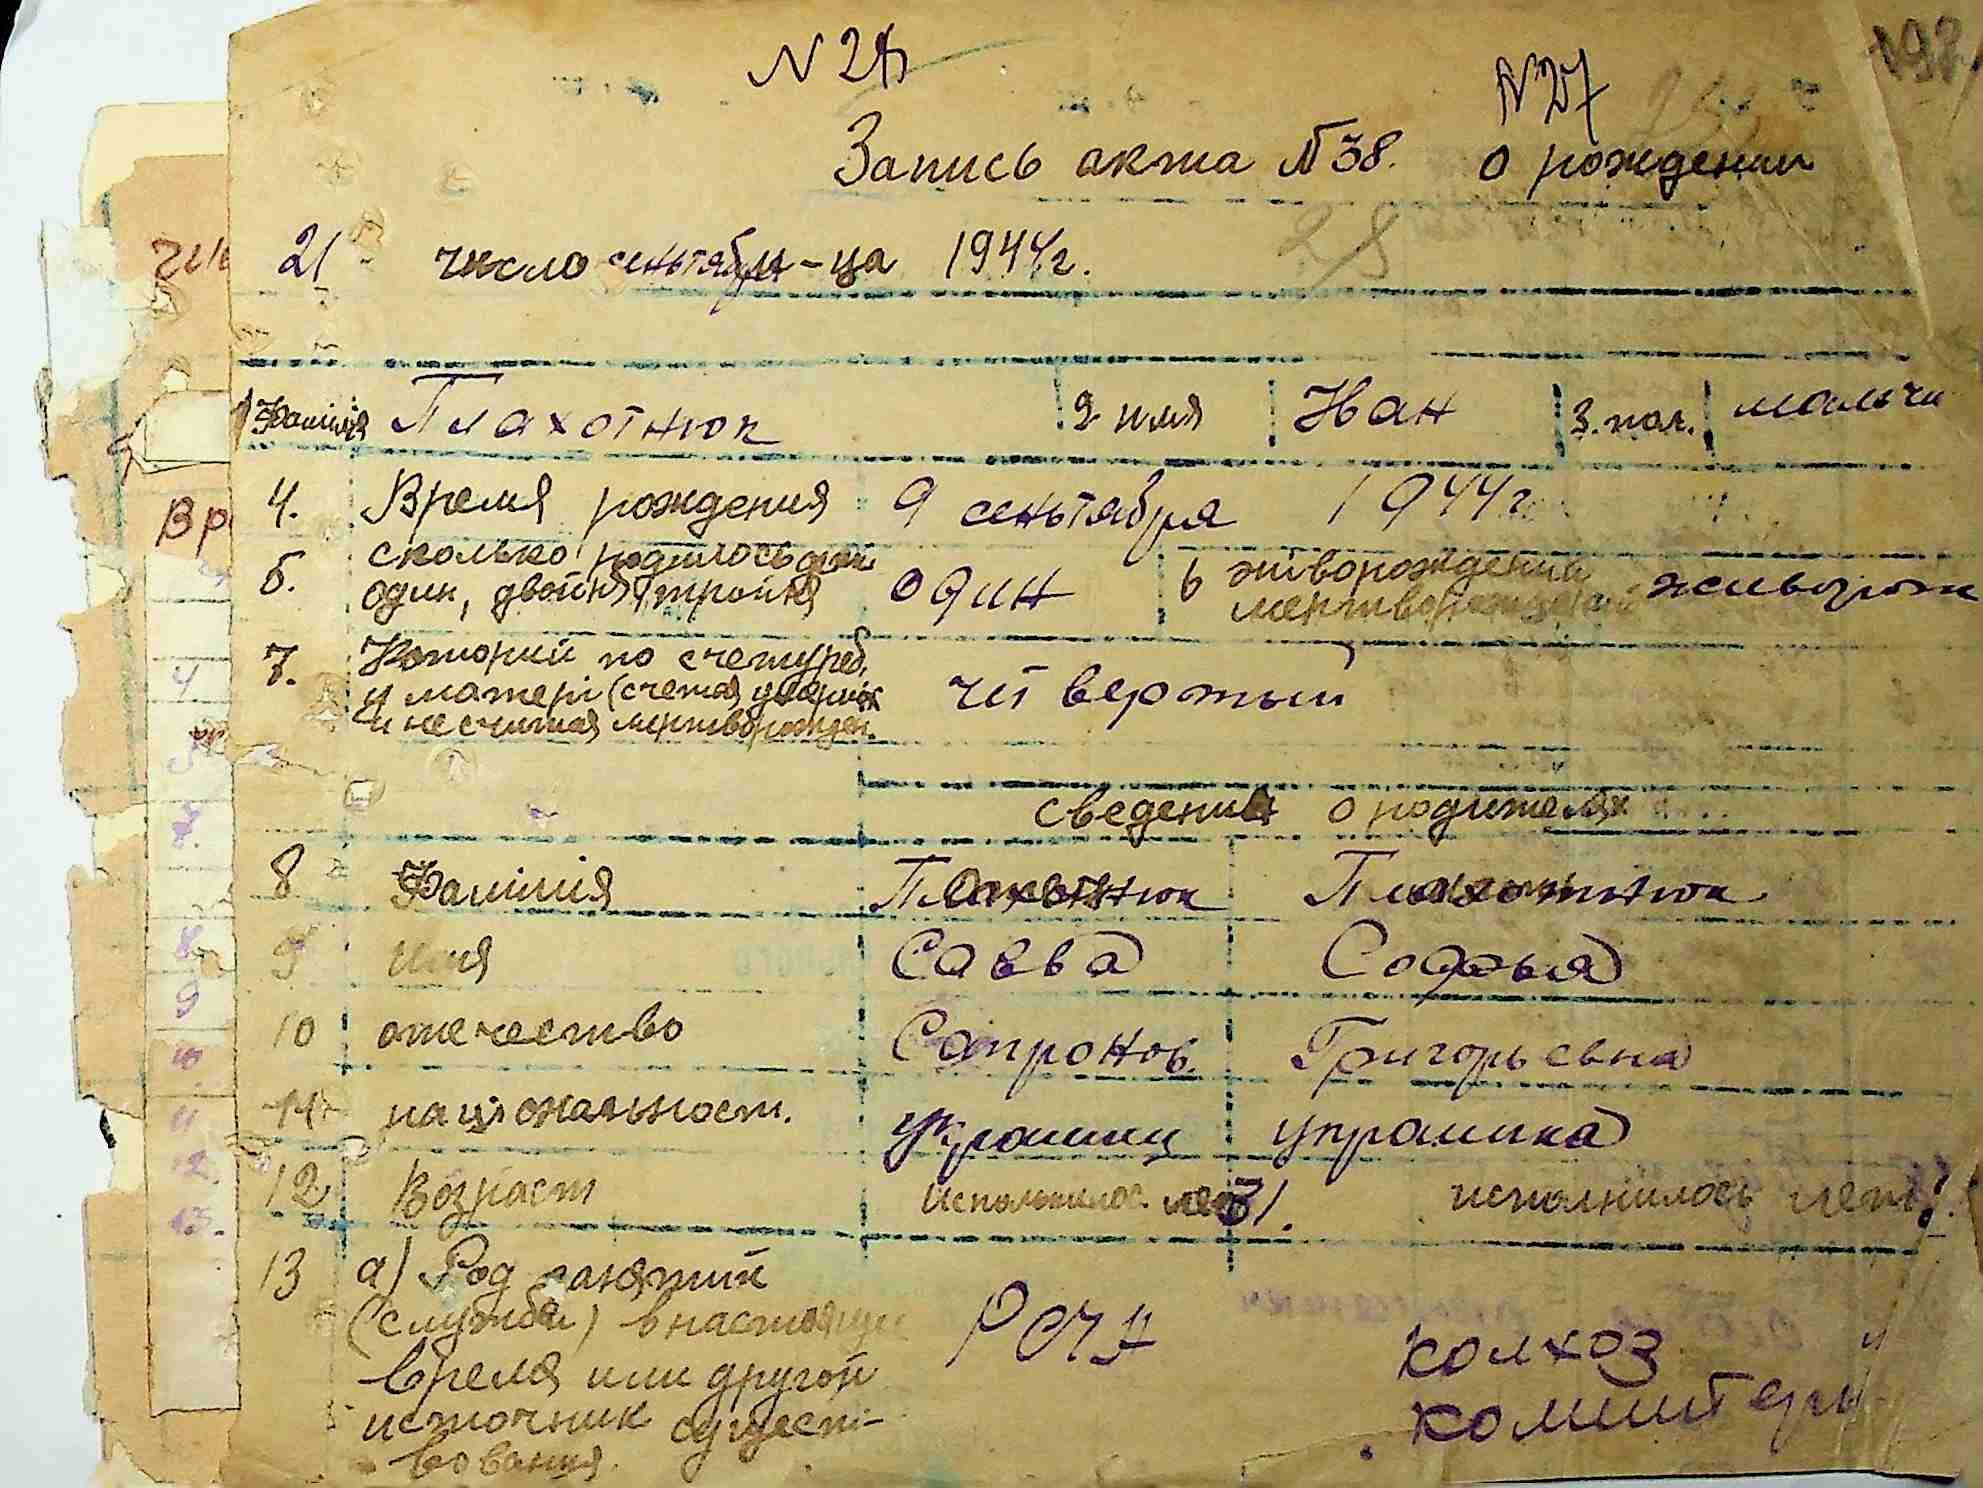 N 27
192
Запись акта N 38. о рождении
28
21 число сентября м-ца 1944 г.
1 Фамилія Плахотнюк 2 имя Иван 3. пол. мальчи
4. Время рождения 9 сентября 1944 г
5. сколько родилось дет. один, двойня, тройня один 6 живорождений мертворожден живорож
7. Которий по счету реб.
у матері (считая умерших
и не считая мертворожден. четвертый
сведения о родителях
8 Фамілія Плахотнюк Плахотнюк
9 имя Савва Софья
10 отчество Сапронов. Григорьевна
11 национальност. украинец украинка
12 Возраст исполнилос. лет 31. исполнилось лет
13 а) Род занятий
(служба) в настоящее РСЧА колхоз
время или другой Коминтерн
источник сущест-
вования.